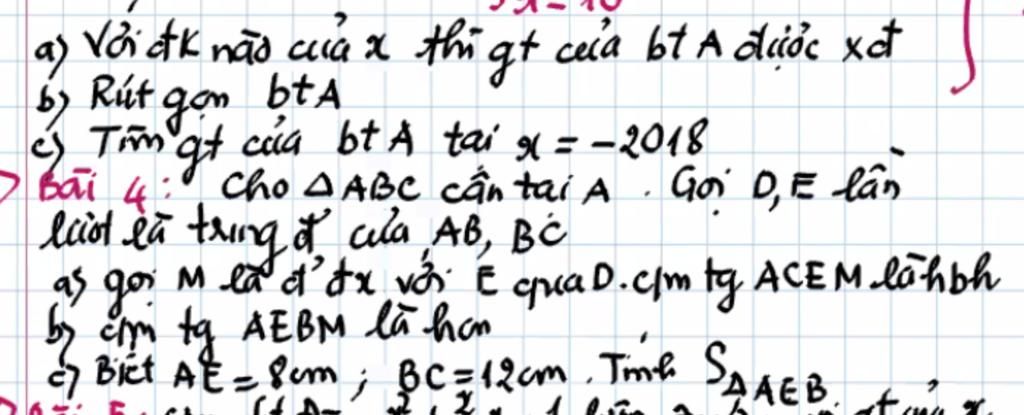 a) Với đk nào của x thì gt của bt A được xđ
b) Rút gọn bt A
c) Tìm gt của bt A tại x = -2018
Bài 4: Cho △ABC cân tại A. Gọi D, E lần
lượt là trung đ' của AB, BC
a) gọi M là đ' đx với E qua D. c/m tg ACEM là hbh
b) c/m tg AEBM là hcn
c) Biết AE = 8cm; BC = 12cm. Tính S△AEB